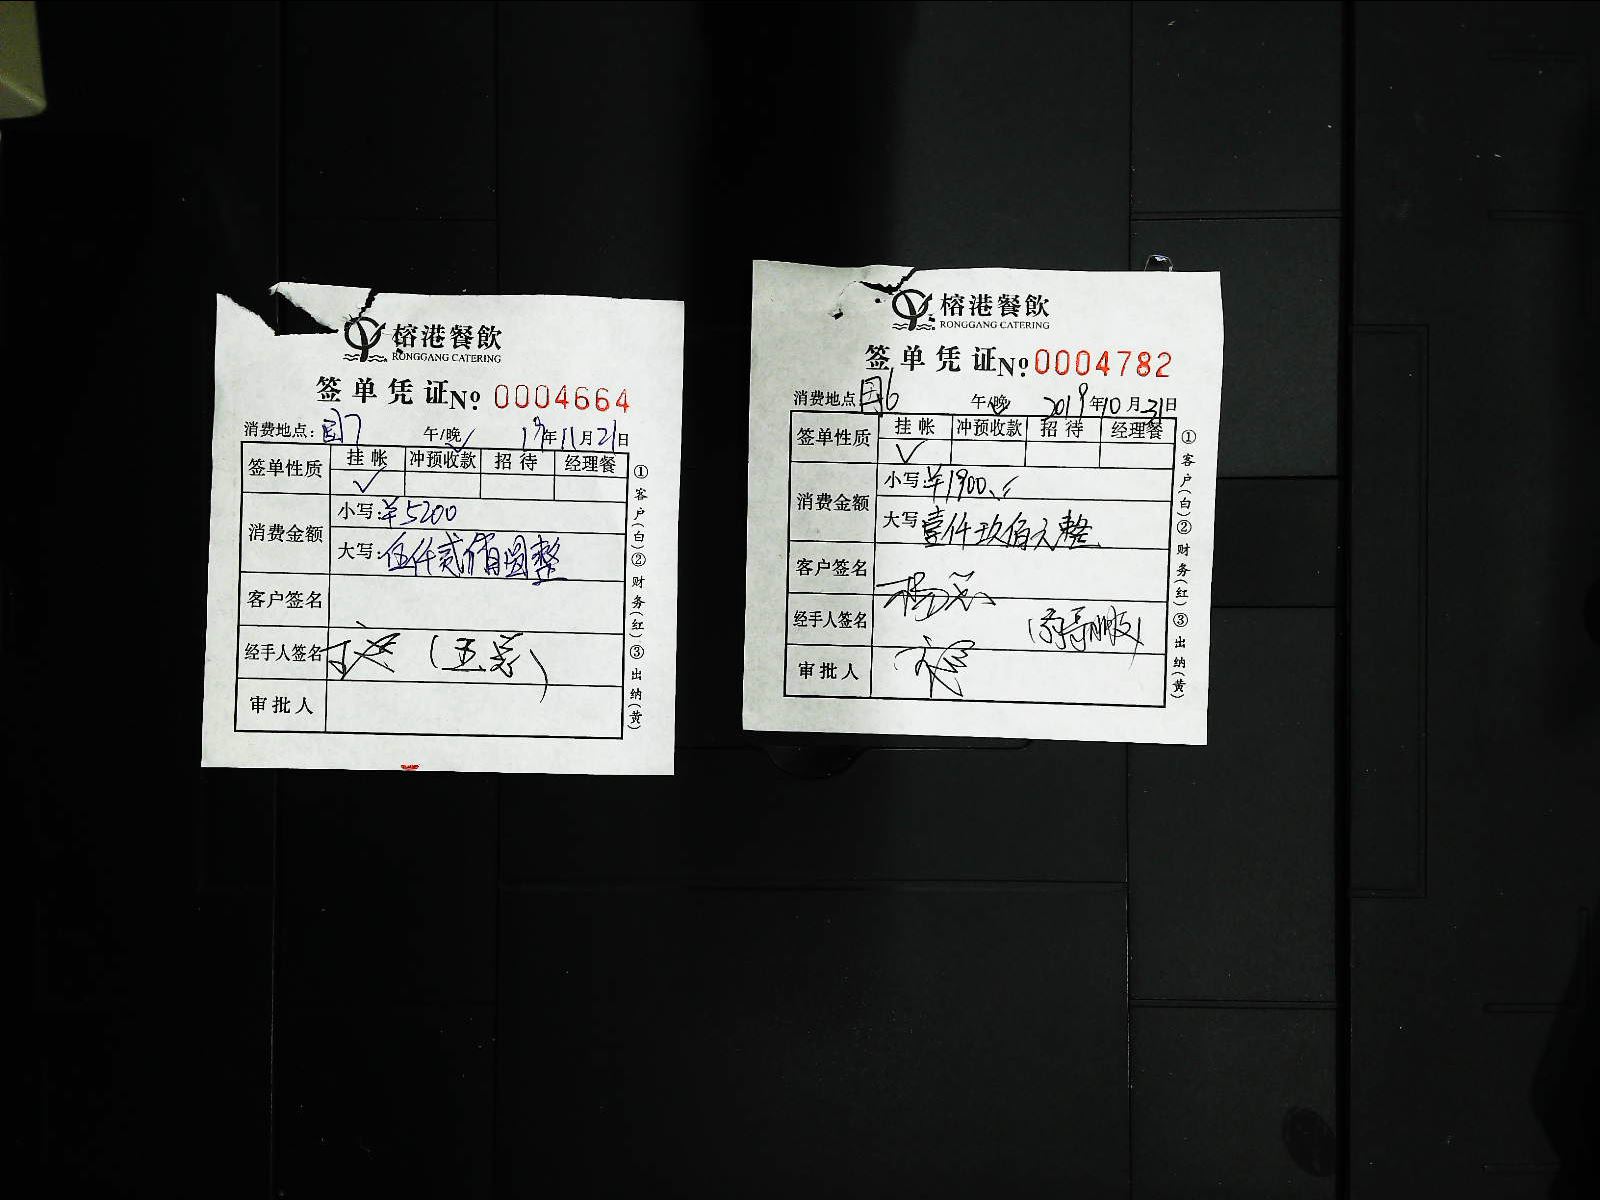 榕港餐飲
RONGGANG CATERING
签单凭证 № 0004664
消费地点: 国7 午/晚 19年11月21日
签单性质 挂帐 冲预收款 招待 经理餐
✓
消费金额
小写: ¥5200
大写: 伍仟贰佰圆整
客户签名
经手人签名 (王总)
审批人
①客户(白)②财务(红)③出纳(黄)
榕港餐飲
RONGGANG CATERING
签单凭证 № 0004782
消费地点 国6 午/晚 2019年10月31日
签单性质 挂帐 冲预收款 招待 经理餐
✓
消费金额
小写: ¥1900
大写: 壹仟玖佰元整
客户签名 杨总
经手人签名
审批人
①客户(白)②财务(红)③出纳(黄)